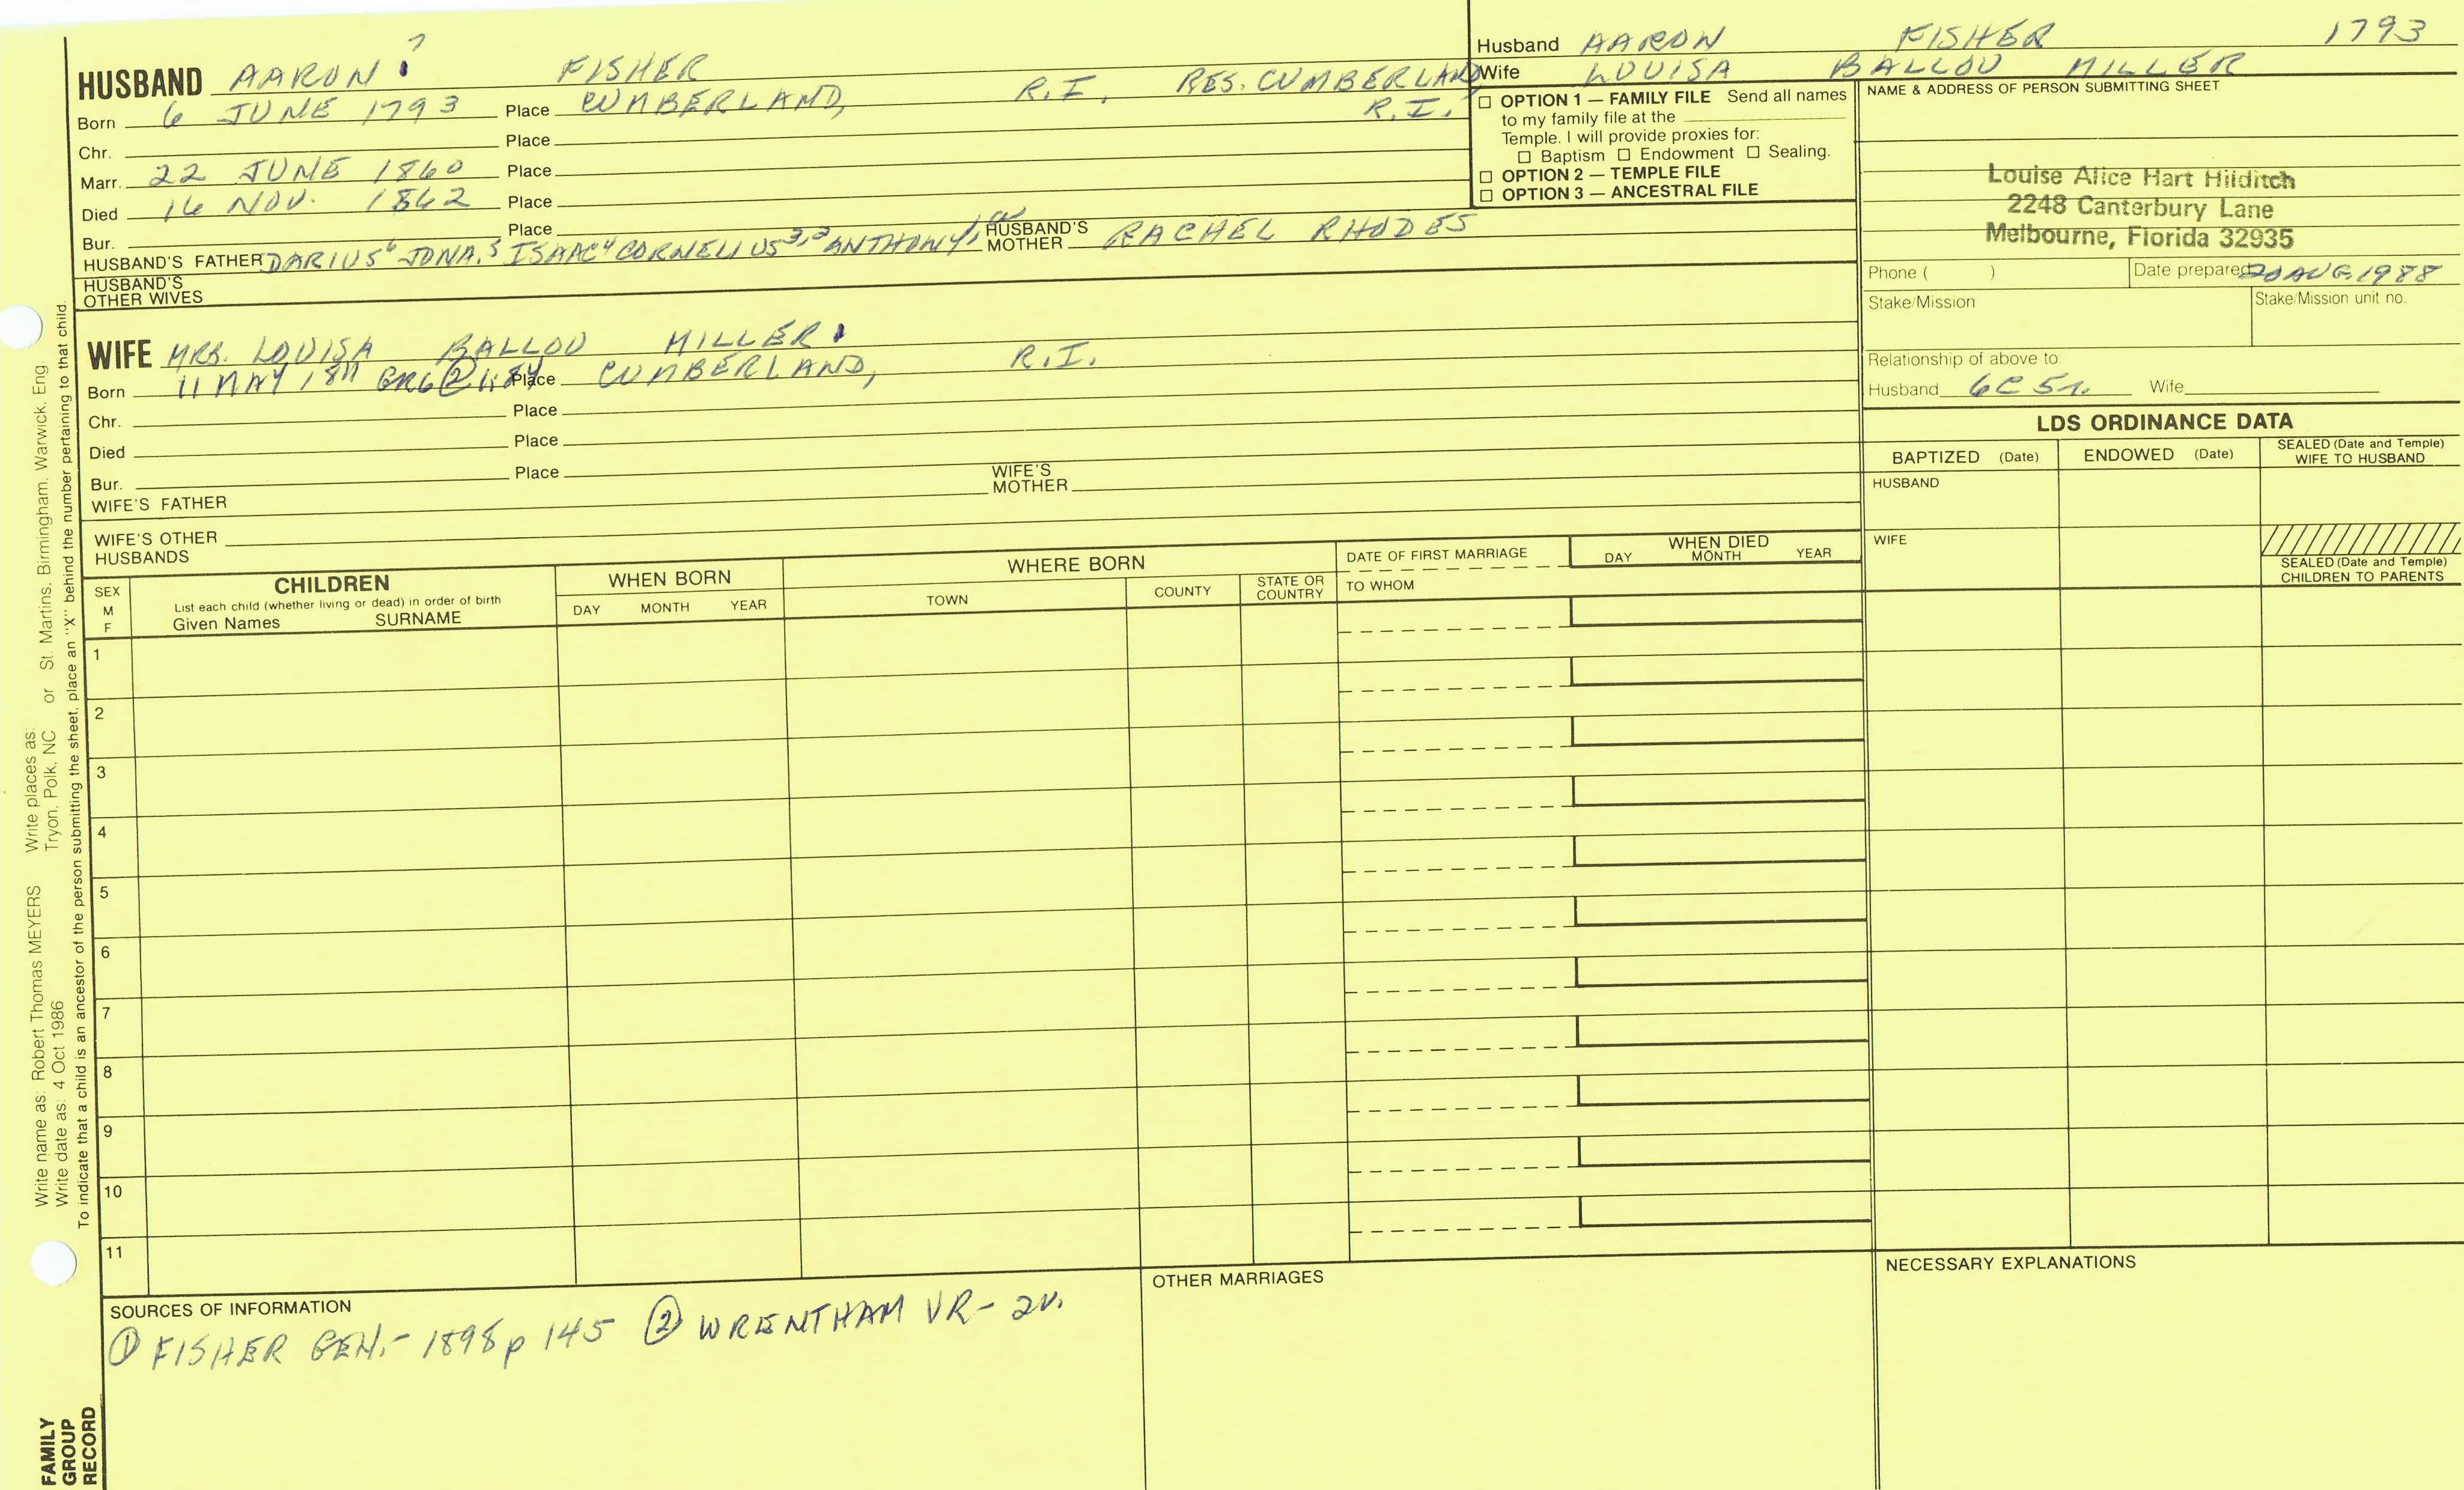 HUSBAND AARON 7 FISHER
Born 6 JUNE 1793 Place CUMBERLAND, R.I. RES. CUMBERLAND R.I.
Chr. Place
Marr. 22 JUNE 1860 Place
Died 16 NOV. 1862 Place
Bur. Place
HUSBAND'S FATHER DARIUS6 JONA.5 ISAAC4 CORNELIUS3,2 ANTHONY1 HUSBAND'S MOTHER RACHEL RHODES
HUSBAND'S OTHER WIVES
WIFE MRS. LOUISA BALLOU MILLER
Born 11 MAY 1811 Place CUMBERLAND, R.I.
Chr. Place
Died Place
Bur. Place
WIFE'S FATHER WIFE'S MOTHER
WIFE'S OTHER HUSBANDS
Husband AARON FISHER 1793
Wife LOUISA BALLOU MILLER
☐ OPTION 1 — FAMILY FILE Send all names
to my family file at the
Temple. I will provide proxies for:
☐ Baptism ☐ Endowment ☐ Sealing.
☐ OPTION 2 — TEMPLE FILE
☐ OPTION 3 — ANCESTRAL FILE
NAME & ADDRESS OF PERSON SUBMITTING SHEET
Louise Alice Hart Hilditch
2248 Canterbury Lane
Melbourne, Florida 32935
Phone ( ) Date prepared 20 AUG. 1988
Stake/Mission Stake/Mission unit no.
Relationship of above to
Husband 6C 5r. Wife
LDS ORDINANCE DATA
BAPTIZED (Date) ENDOWED (Date) SEALED (Date and Temple) WIFE TO HUSBAND
HUSBAND
WIFE
SEALED (Date and Temple) CHILDREN TO PARENTS
SEX M F
CHILDREN
List each child (whether living or dead) in order of birth
Given Names SURNAME
WHEN BORN
DAY MONTH YEAR
WHERE BORN
TOWN COUNTY STATE OR COUNTRY
DATE OF FIRST MARRIAGE
TO WHOM
WHEN DIED
DAY MONTH YEAR
1
2
3
4
5
6
7
8
9
10
11
SOURCES OF INFORMATION
① FISHER GEN.- 1898 p 145 ② WRENTHAM VR- 2v.
OTHER MARRIAGES
NECESSARY EXPLANATIONS
Write name as: Robert Thomas MEYERS Write places as: or St. Martins. Birmingham. Warwick. Eng.
Write date as: 4 Oct 1986 Tryon. Polk. NC
To indicate that a child is an ancestor of the person submitting the sheet, place an "X" behind the number pertaining to that child.
FAMILY
GROUP
RECORD